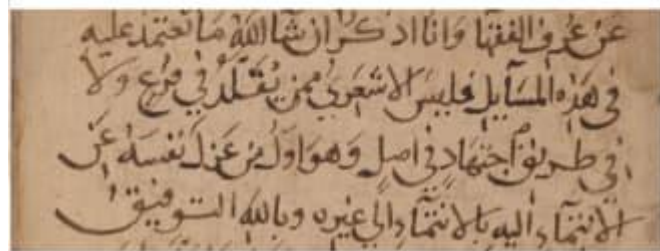 عن عرف الفقها وانا اذكر ان شا الله ما تعتمد عليه
في هذه المسايل فليس الاشعري ممن يقلد في فرع ولا
في طريق اجتهاد في اصل وهو اول من عزل نفسه عن
الانتماء اليه بالانتماء الي غيره وبالله التوفيق